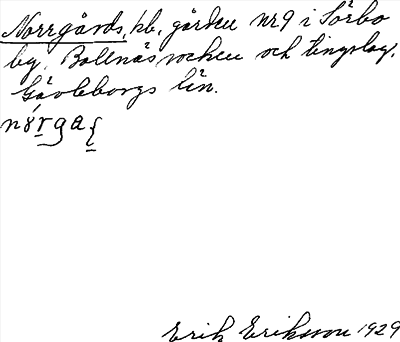 Norrgårds, hb. gården nr 9 i Sörbo
by, Bollnäs socken och tingslag,
Gävleborgs län.
Erik Eriksson 1929